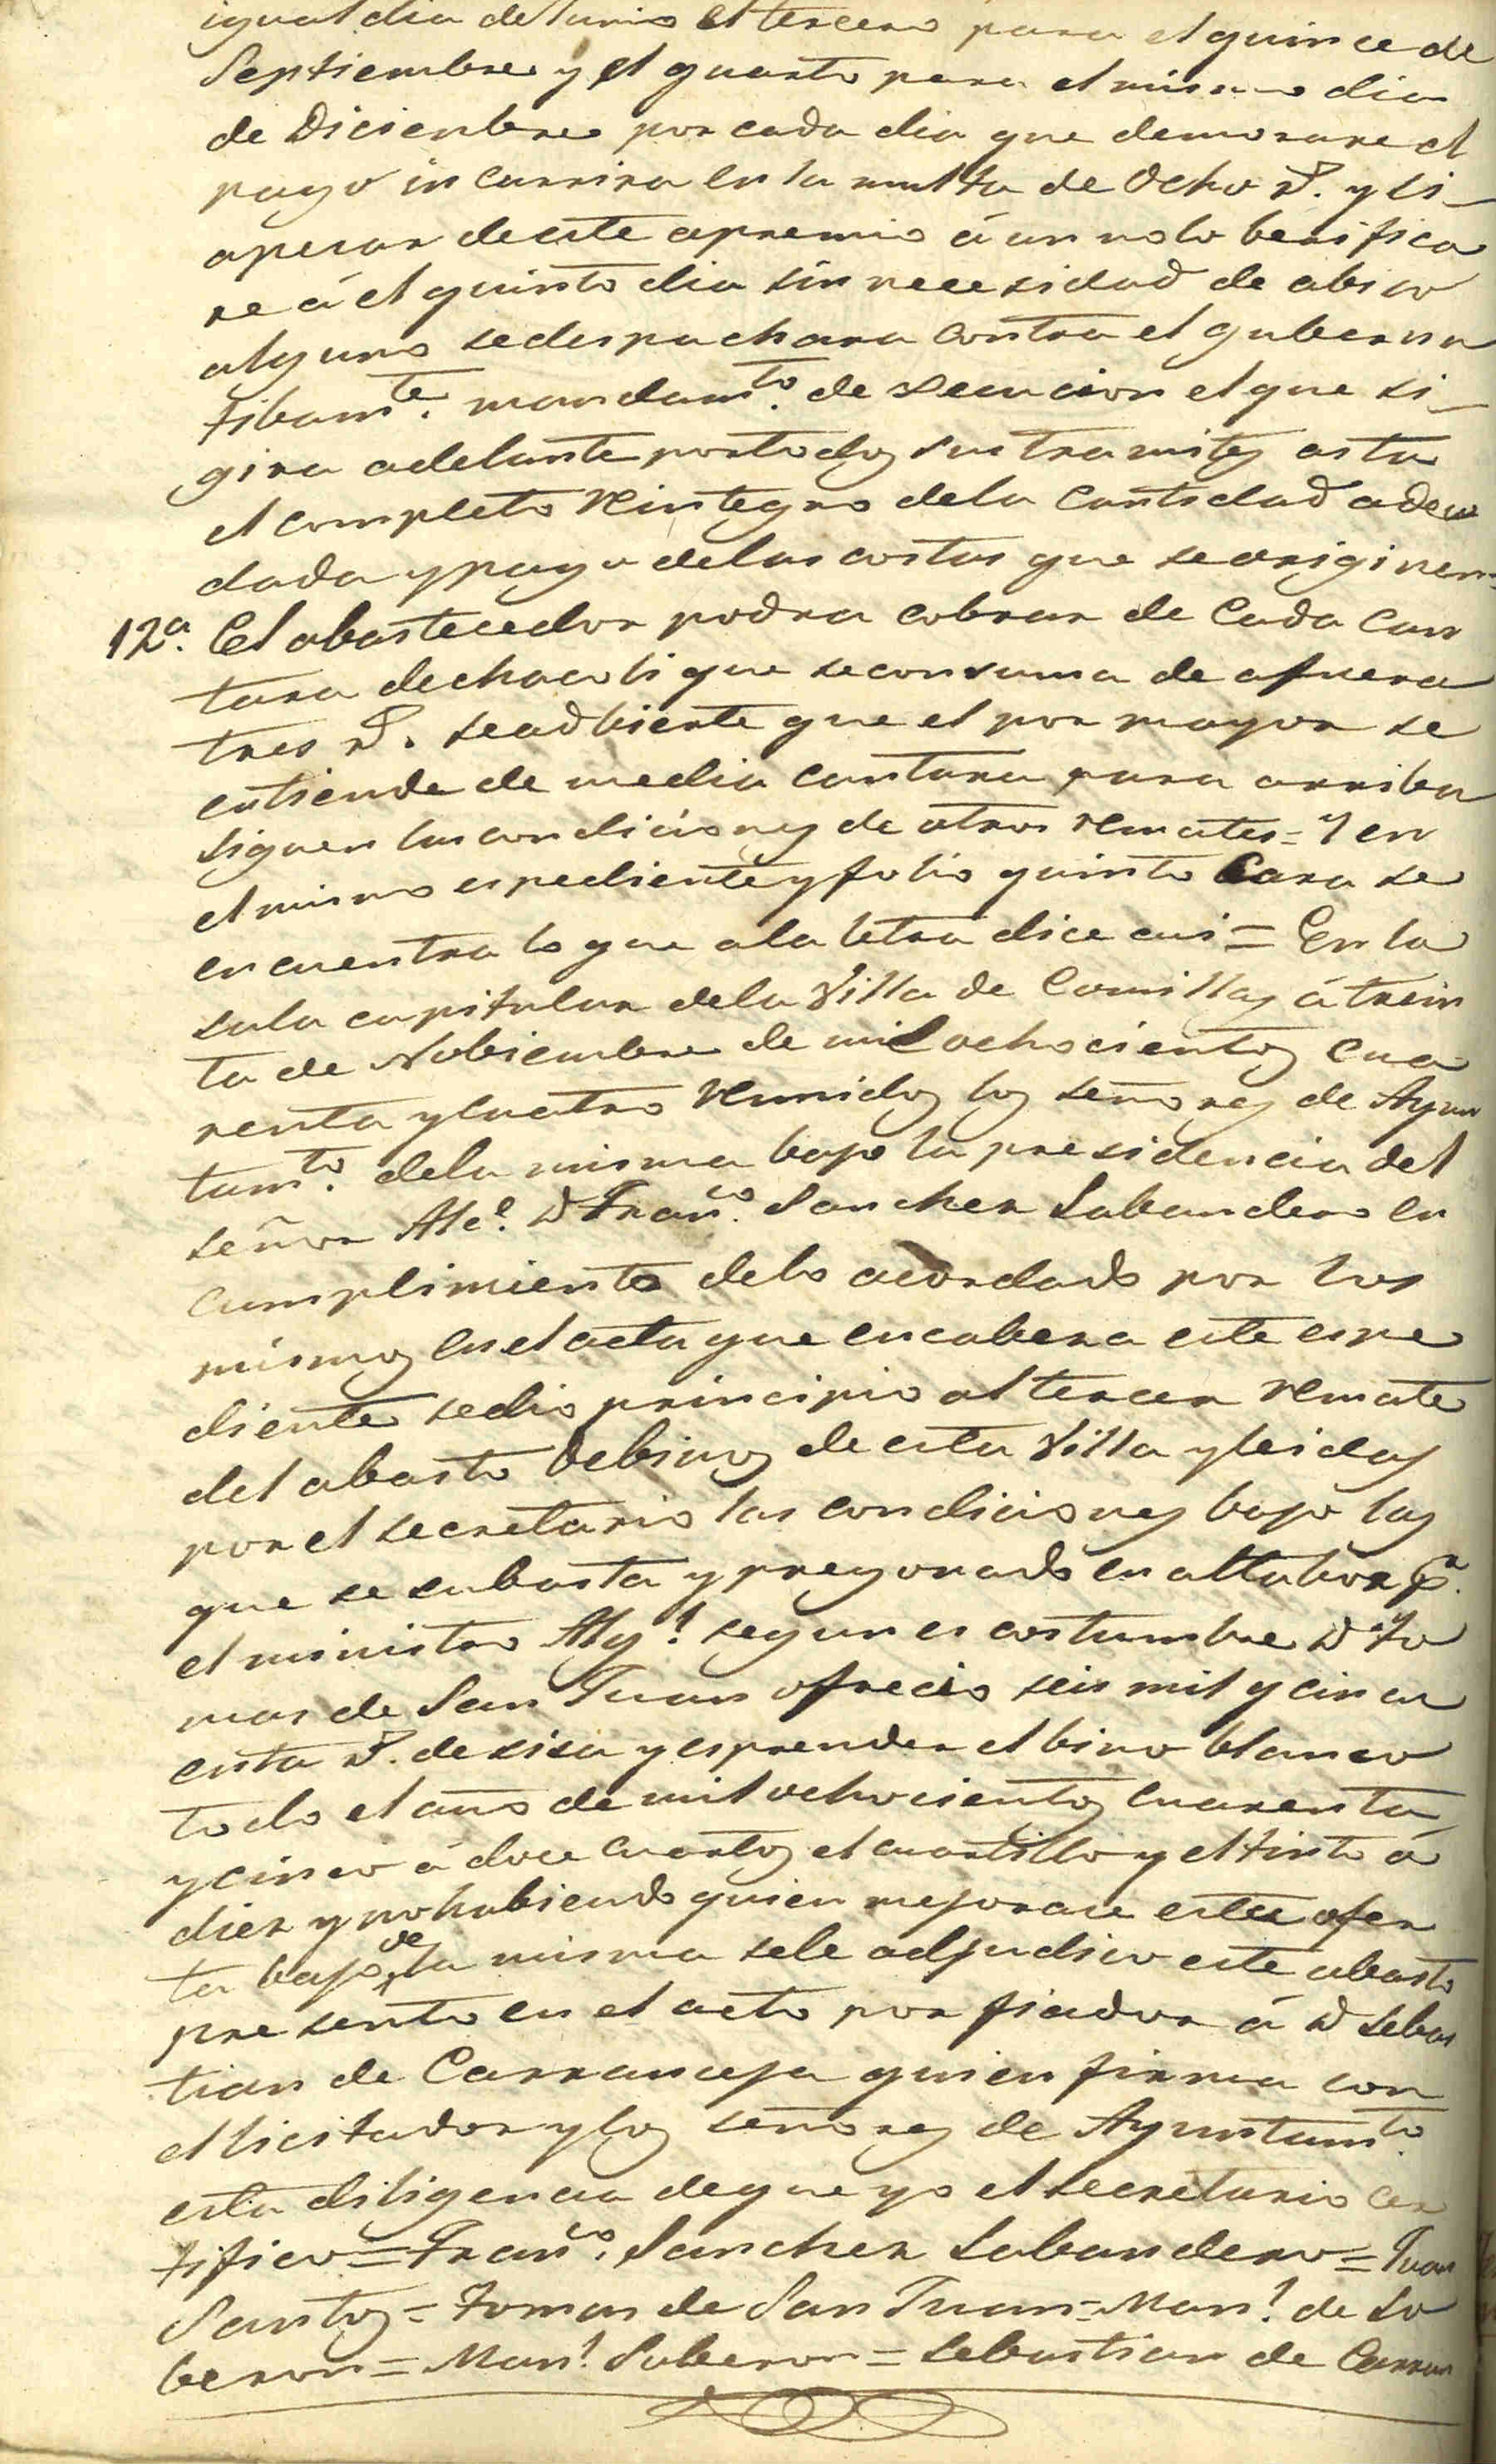 igual dia de Junio el tercero para el quince de
Septiembre y el quarto para el mismo dia
de Diciembre por cada dia que demorare el
pago incurrira en la multa de Ocho r.s y si
apesar de este apremio áun no lo berifica
re á el quinto dia sin necesidad de abiso
alguno se despachara contra el guberna
tibam.te mandam.to de secucion el que si
gira adelante por todos sus tramites asta
el completo reintegro de la cantidad adeu
dada y pago de las costas que se originen=
12.a El abastecedor podra cobrar de cada can
tara de chacoli que se consuma de afuera
tres r.s se adbierte que el por mayor se
entiende de media cantara para arriba
siguen las condiciones de otros remates= Y en
el mismo espediente y folio quinto cara se
encuentra lo que a la letra dice asi= En la
sala capitular de la Villa de Comillas á trein
ta de Nobiembre de mil ochocientos cua
renta y cuatro reunidos los señores de Ayun
tam.to de la misma bajo la presidencia del
señor Alc.e D Fran.co Sanchez Labandero en
cumplimiento de lo acordado por los
mismos en el acta que encabeza este espe
diente se dio principio al tercer remate
del abasto de binos de esta Villa y leidas
por el secretario las condiciones bajo las
que se subasta y pregonado en alta boz p.r
el ministro Alg.l segun es costumbre D To
mas de San Juan ofrecio seis mil y cincu
enta r.s de sisa y esprender el bino blanco
todo el año de mil ochocientos cuarenta
y cinco á doce cuartos el cuartillo y el tinto á
diez y no habiendo quien mejorase esta ofer
ta bajo de la misma se le adjudico este abasto
presento en el acto por fiador á D Sebas
tian de Carranceja quien firma con
el licitador y los señores de Ayuntam.to
esta diligencia de que yo el secretario cer
tifico= Fran.co Sanchez Labandero= Juan
Santos= Tomas de San Juan= Man.l de So
beron= Man.l Soberon= Sebastian de Carran